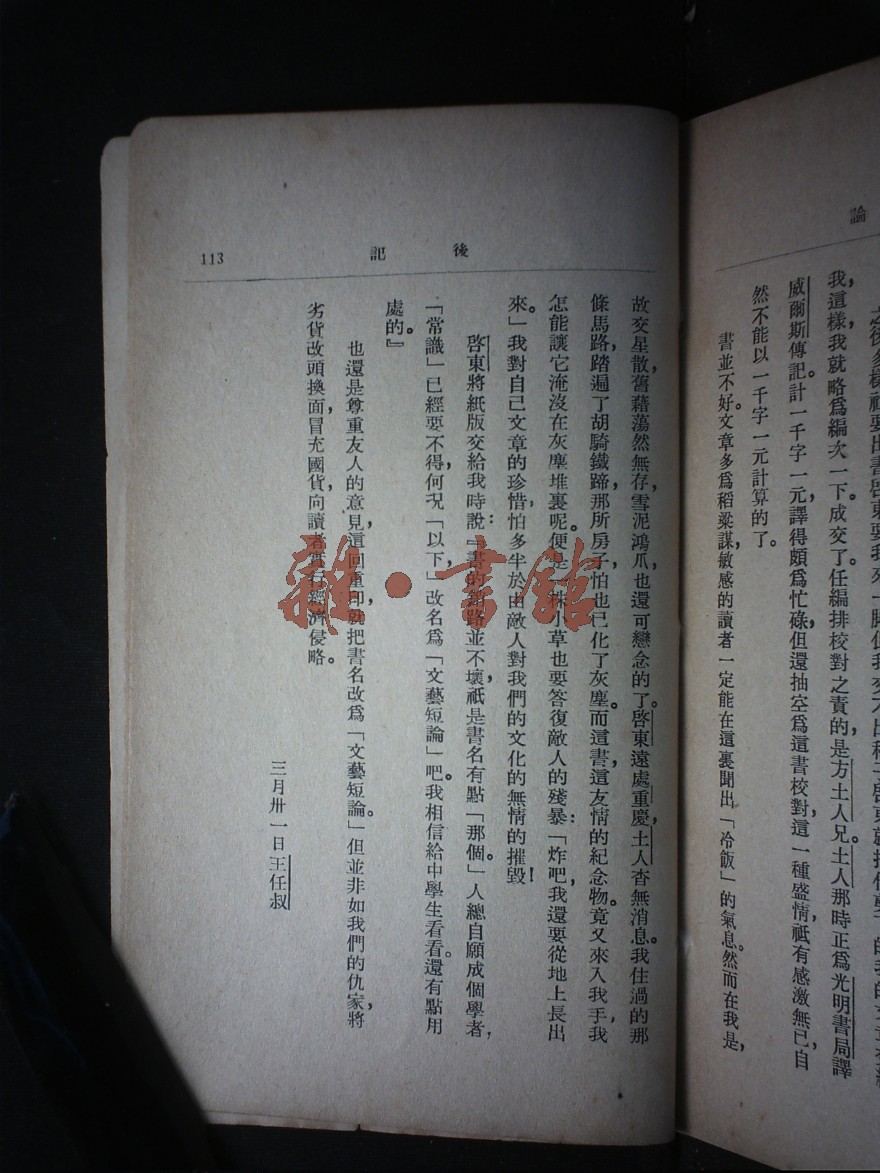 論
我，這樣，我就略爲編次一下。成交了。任編排校對之責的，是方土人兄。土人那時正爲光明書局譯
威爾斯傳記，計一千字一元，譯得頗爲忙碌，但還抽空爲這書校對，這一種盛情，祇有感激無已，自
然不能以一千字一元計算的了。
書並不好。文章多爲稻粱謀，敏感的讀者一定能在這裏聞出「冷飯」的氣息。然而在我是，
後記
113
故交星散，舊藉蕩然無存，雪泥鴻爪，也還可戀念的了。啓東遠處重慶，土人杳無消息。我住過的那
條馬路，踏遍了胡騎鐵蹄，那所房子，怕也已化了灰塵。而這書，這友情的紀念物。竟又來入我手，我
怎能讓它淹沒在灰塵堆裏呢。便是一株小草也要答復敵人的殘暴：「炸吧，我還要從地上長出
來。」我對自己文章的珍惜，怕多半於由敵人對我們的文化的無情的摧毀！
啓東將紙版交給我時說：『書的銷路並不壞，祇是書名有點「那個。」人總自願成個學者，
「常識」已經要不得，何況「以下，」改名爲「文藝短論」吧。我相信給中學生看看，還有點用
處的。』
也還是尊重友人的意見，這回重印，就把書名改爲「文藝短論。」但並非如我們的仇家，將
劣貨改頭換面，冒充國貨，向讀者實行經濟侵略。
三月卅一日王任叔